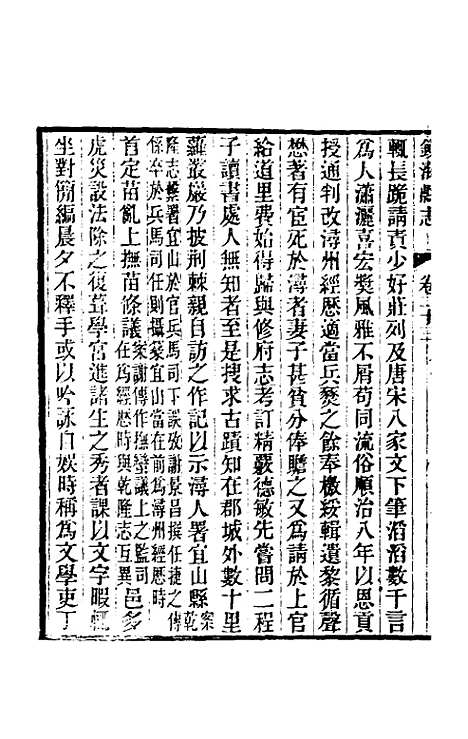 鎮海縣志 卷二十
輒長跪請責少好莊列及唐宋八家文下筆滔滔數千言
爲人瀟灑喜宏奬風雅不屑苟同流俗順治八年以恩貢
授通判改潯州經歷適當兵燹之餘奉檄綏輯遺黎循聲
懋著有宦死於潯者妻子甚貧分俸贍之又爲請於上官
給道里費始得歸與修府志考訂精覈德敏先嘗問二程
子讀書處人無知者至是搜求古蹟知在郡城外數十里
蘿叢巖乃披荆棘親自訪之作記以示潯人署宜山縣案乾
隆志櫫署宜山於官兵馬司下誤攷謝景昌撰任捷之傳
係卒於兵馬司任所攝篆宜山當在前爲潯州經歷時
首定苗亂上撫苗條議案謝傳作撫蠻議上之監司在爲經歷時與乾隆志互異邑多
虎災設法除之復葺學宫進諸生之秀者課以文字暇輒
坐對簡編晨夕不釋手或以吟詠自娛時稱爲文學吏丁